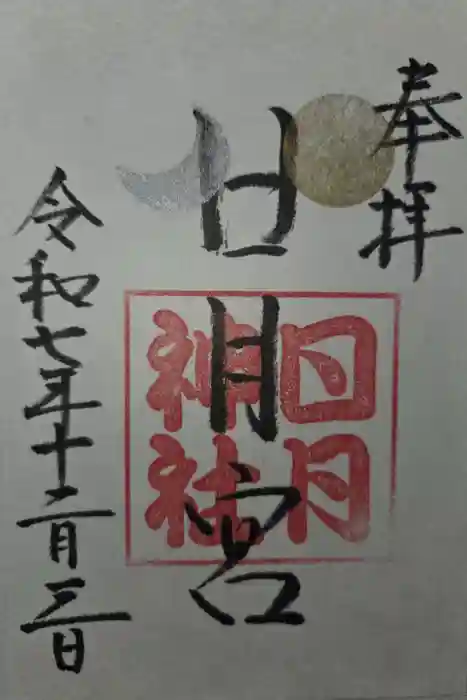 奉拝
日月宮
日月
神社
令和七年十二月三日